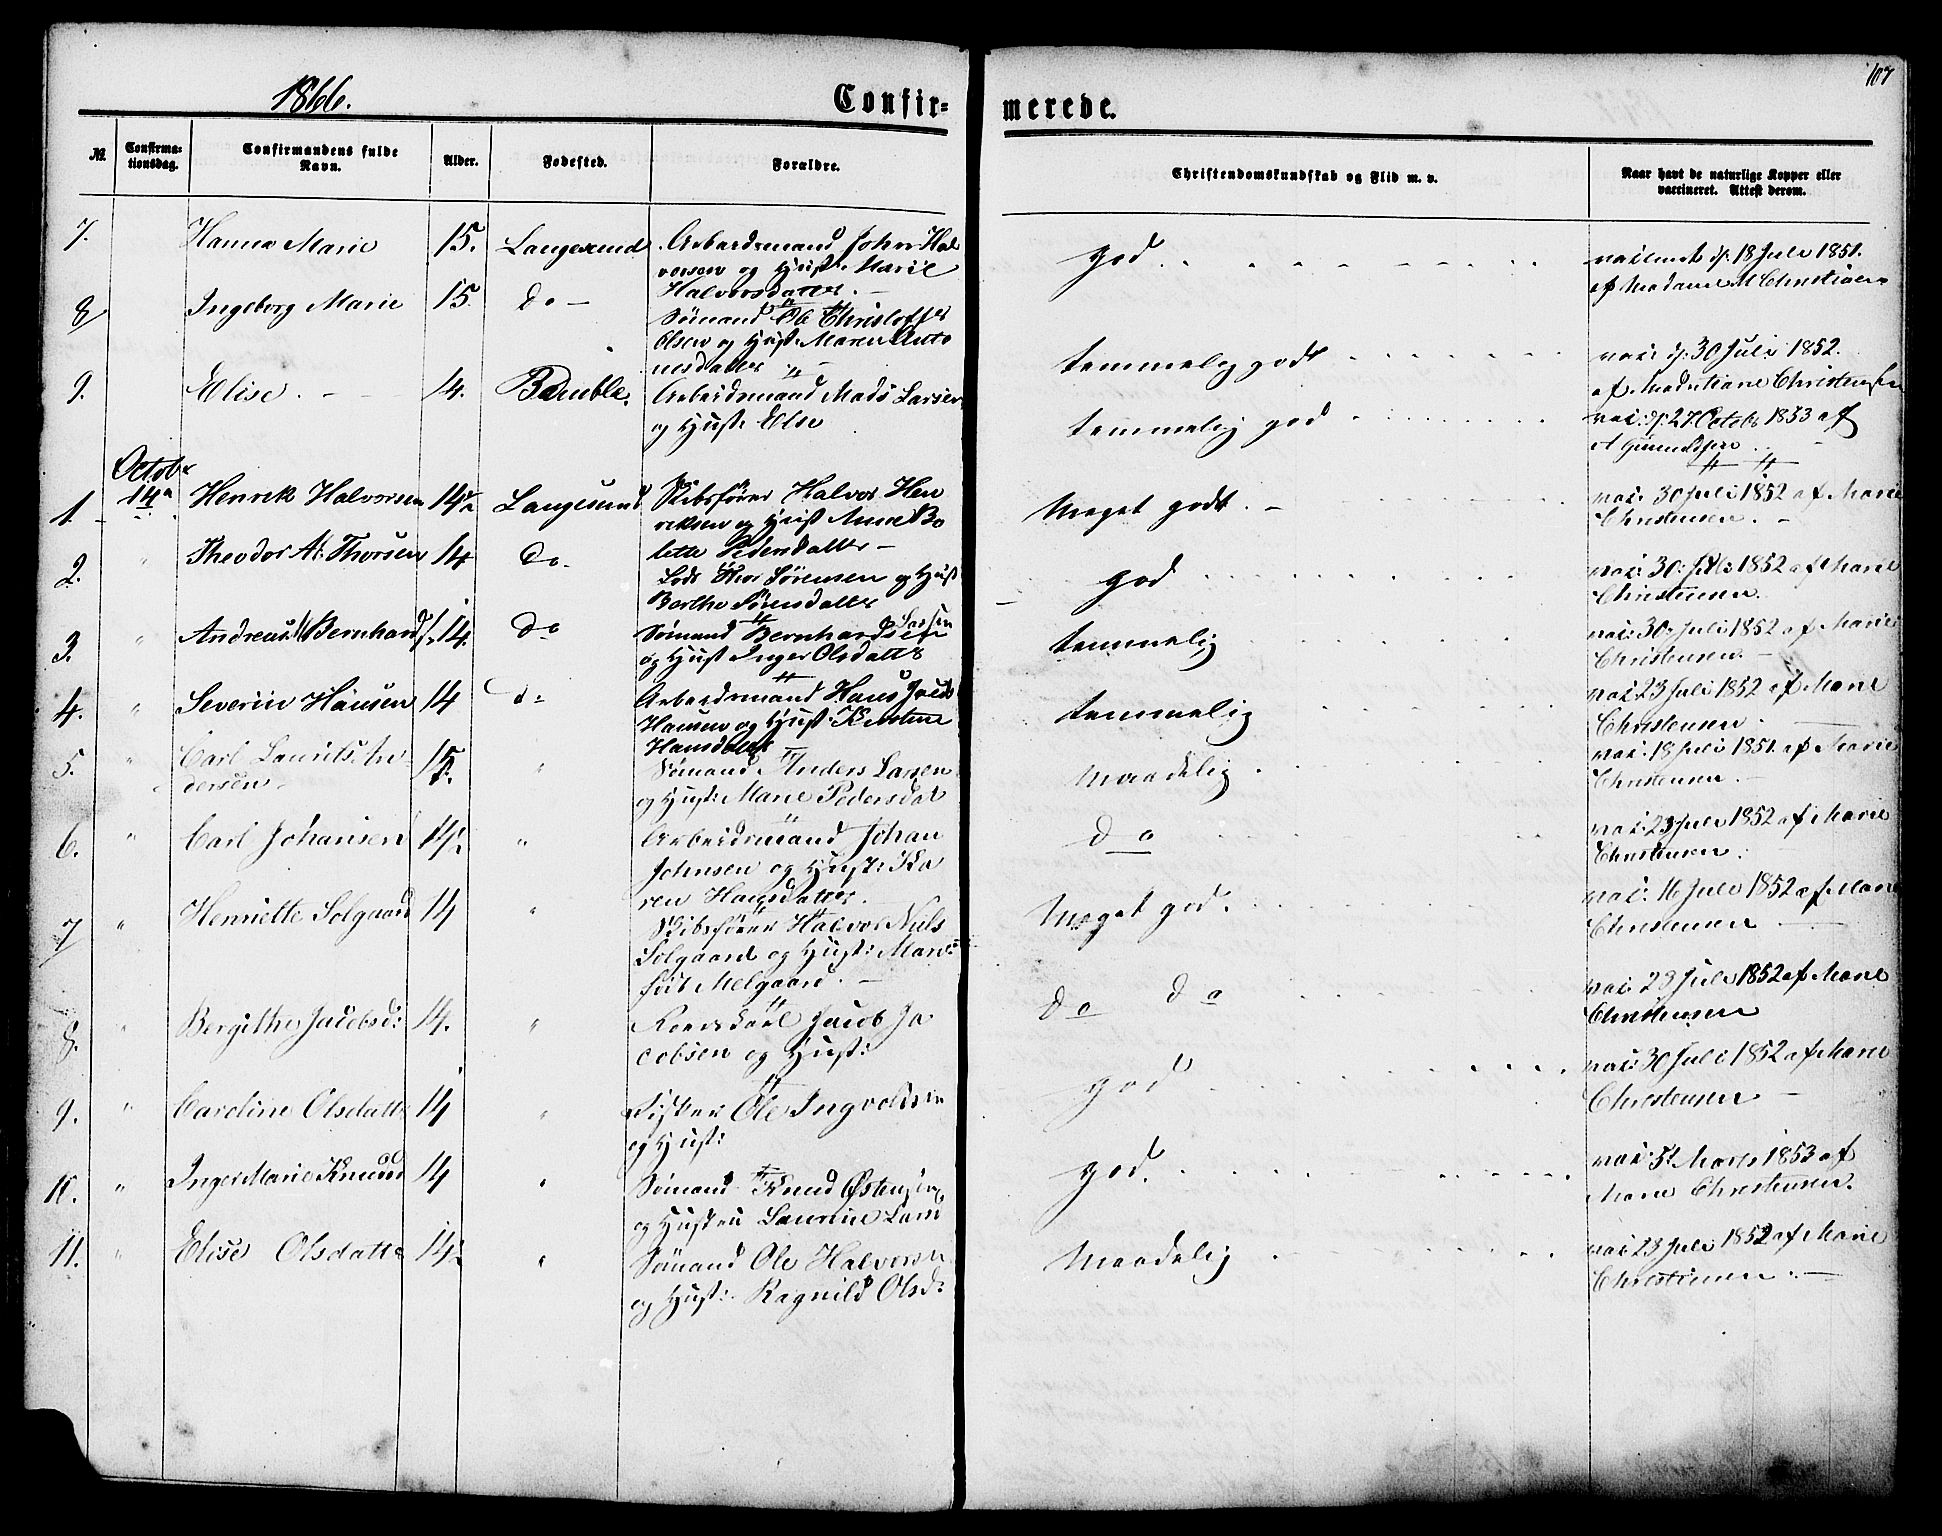 107
1866.
Confir-
merede.
№.
Confirma-
tionsdag.
Confirmandens fulde
Navn.
Alder.
Fødested.
Forældre.
Christendomskundskab og Flid m. v.
Naar havt de naturlige Kopper eller
vaccineret. Attest derom.
7. Hanna Marie 15. Langesund Arbeidsmand John Hal
vorsen og Hust: Marie
Halvorsdatter. —
god. vaccineret d: 18 Juli 1851.
af Madame M Christiansen
8 Ingeborg Marie 15. do — Sømand Ole Christoffer
Olsen og Hust: Maren Anto
nisdatter
temmelig godt vac: d: 30 Juli 1852.
af Mad: Christensen
9. Elise. — 14. Bamble. Arbeidsmand Mads Larsen
og Hust: Else
temmelig god vac: d: 27 Octobr 1853 af
Octobr
1. 14de Henrik Halvorsen 14 Langesund Skibsfører Halvor Hen
riksen og Hust Anne Bo
lette Pedersdatter —
Meget godt. — vac: 30 Juli 1852 af Marie
Christensen. —
2. " Theodor A: Thorsen 14 do. Lods Thor Sørensen og Hust
Berthe Sørensdatter
god vac: 30 Juli 1852 af Marie
Christensen.
3. " Andreas Bernhards. 14. do Sømand Bernhard Larsen
og Hust Inger Olsdatter
temmelig vac: 30 Juli 1852 af Marie
Christensen. —
4. " Severin Hansen 14 do Arbeidsmand Hans Jacob
Hansen og Hust: Kirstine
Hansdatter
temmelig vac: 23 Juli 1852 af Marie
Christensen. —
5. " Carl Laurits An-
dersen 15. " Sømand Anders Larsen
og Hust: Marie Pedersdat
Maadelig. vac: 18 Juli 1851. af Marie
Christensen. —
6. " Carl Johansen 14 " Arbeidsmand Johan
Johnsen og Hust: Ka
ren Hansdatter.
do vac: 23 Juli 1852 af Marie
Christensen.
7 " Henriette Solgaard 14 " Skibsfører Halvor Niels
Solgaard og Hust: Maren
Melgaard. —
Meget god. vac: 16 Juli 1852 af Marie
Christensen —
8. " Bergithe Jacobsd: 14. " Jacob Ja
cobsen og Hust:
do do vac: 23 Juli 1852 af Marie
Christensen
9. " Caroline Olsdatt 14 " Fisker Ole Ingvoldsen
og Hust:
god vac: 30 Juli 1852 af Marie
Christensen —
10. " Inger Marie Knudsd 14 " Sømand Knud
og Hustru Laurine Lars
god. vac: Marts 1853 af
Marie Christensen.
11. " Elise Olsdatt 14 " Sømand Ole Halvorsen
og Hust: Ragnild Olsd:
Maadelig vac: 23 Juli 1852 af Marie
Christensen. —